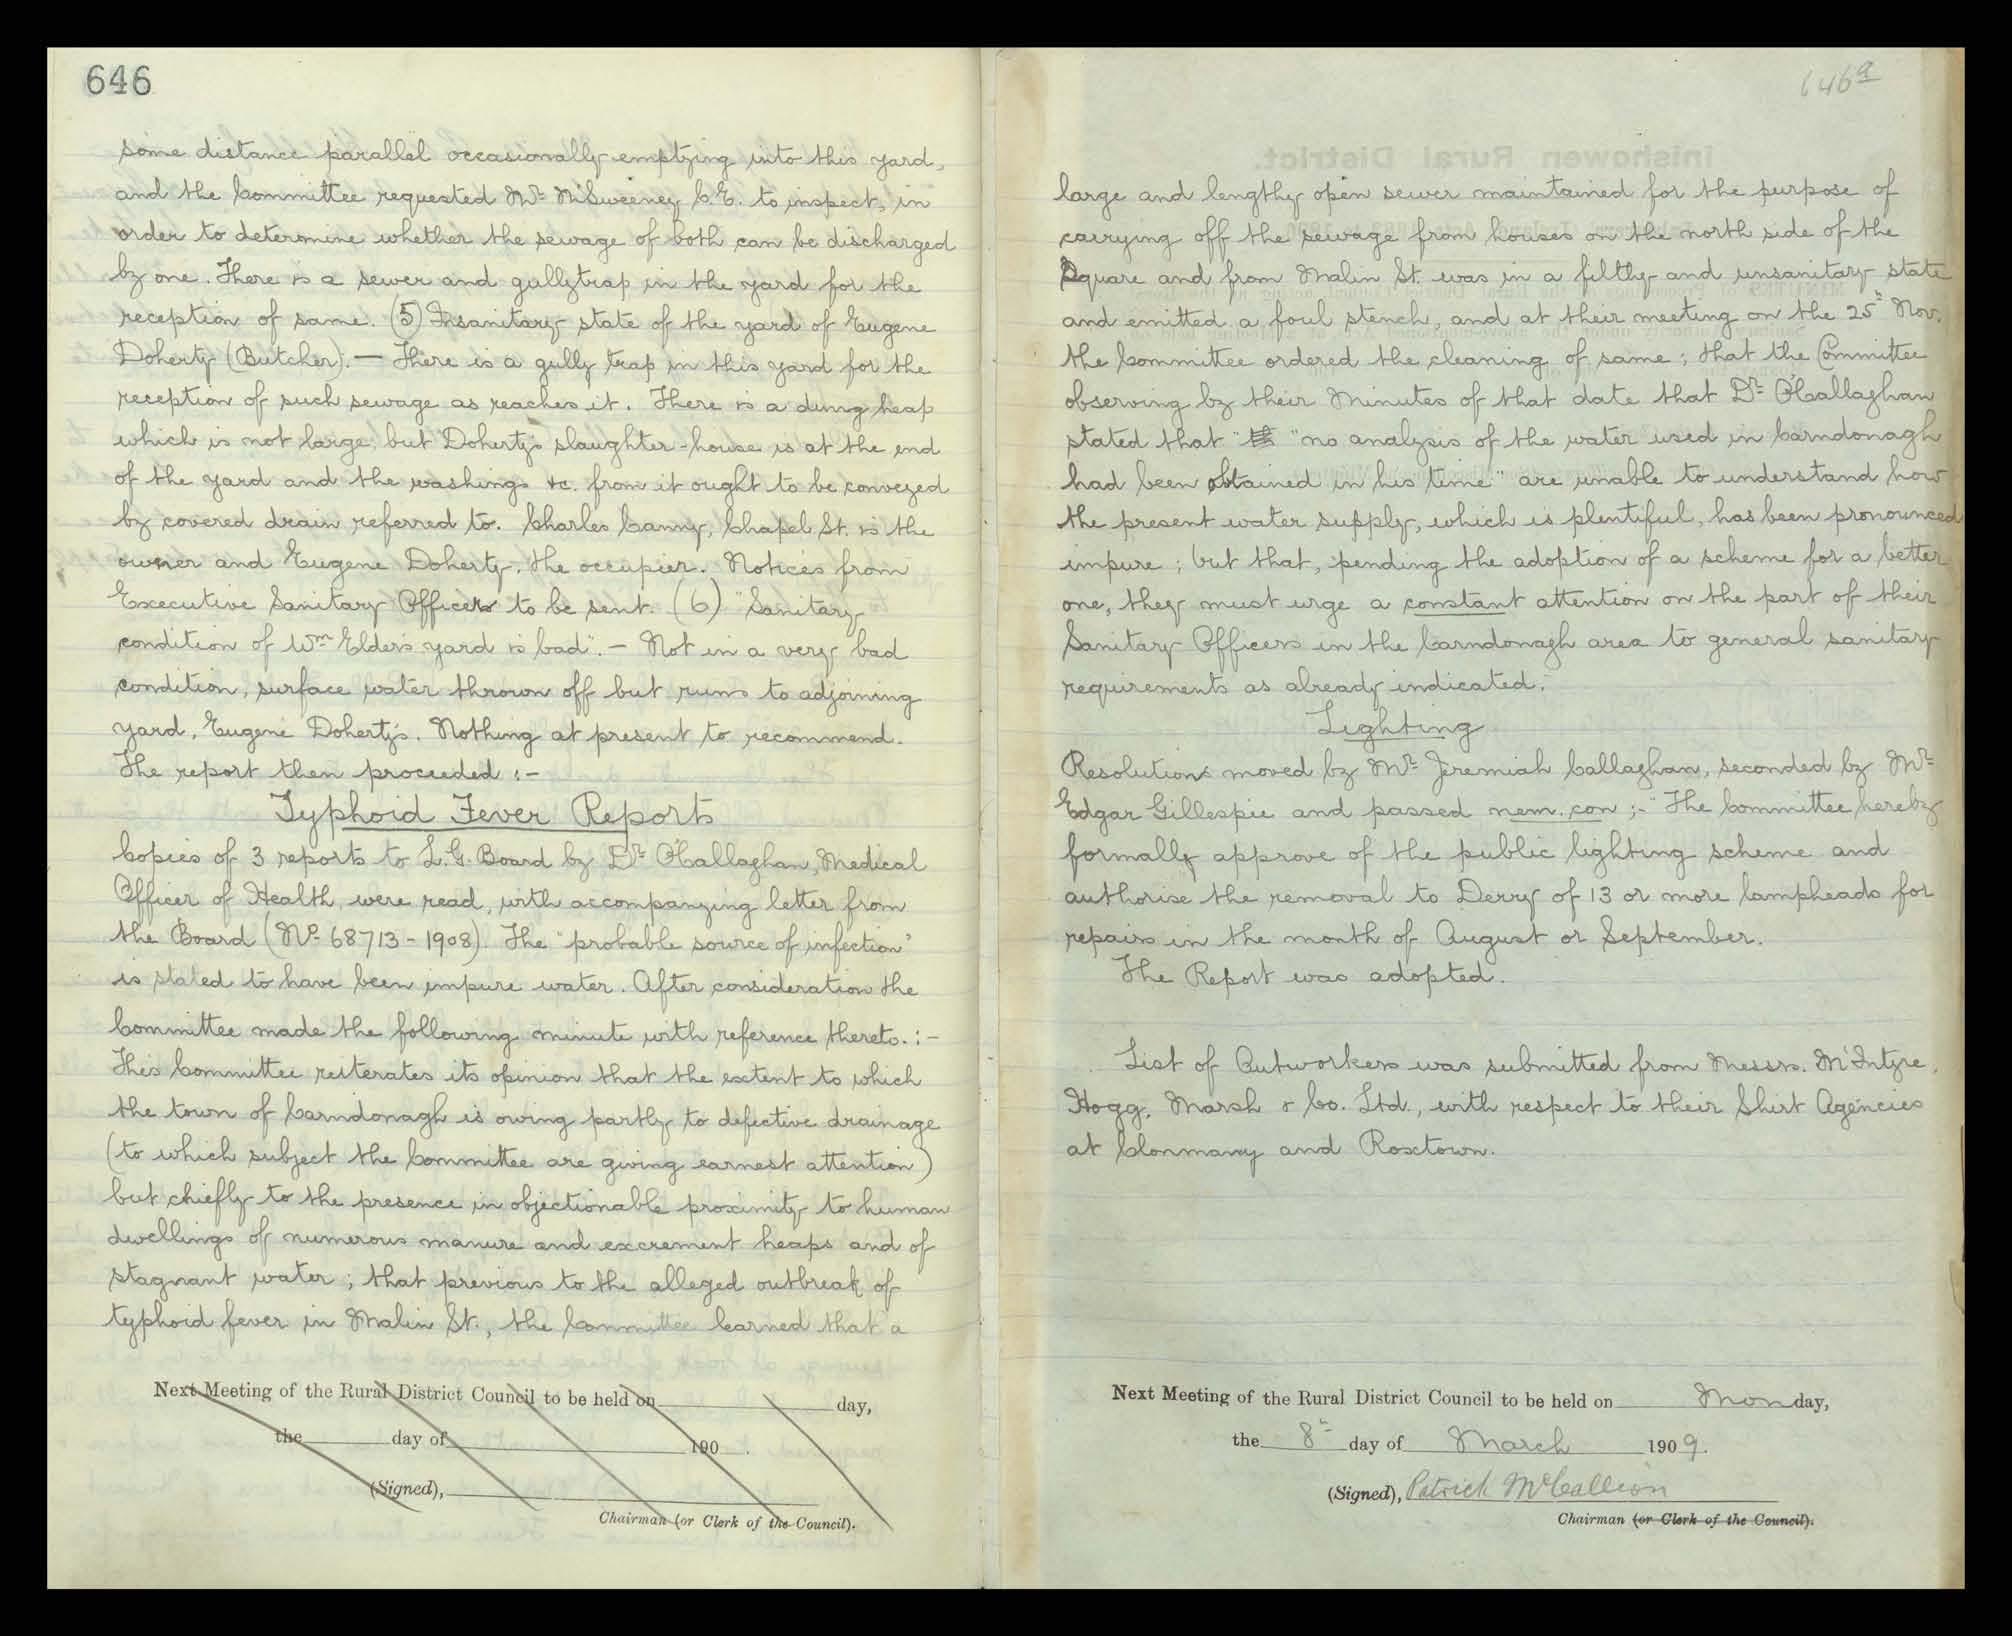 646
some distance parallel occasionally emptying into this yard,
and the Committee requested Mr. McSweeney C.E. to inspect, in
order to determine whether the sewage of both can be discharged
by one. There is a sewer and gullytrap in the yard for the
reception of same. (5) Insanitary state of the yard of Eugene
Doherty (Butcher). — There is a gully trap in this yard for the
reception of such sewage as reaches it. There is a dung heap
which is not large, but Doherty's slaughter-house is at the end
of the yard and the washings &c. from it ought to be conveyed
by covered drain referred to. Charles Canny, Chapel St. is the
owner and Eugene Doherty, the occupier. Notices from
Executive Sanitary Officer to be sent. (6) "Sanitary
condition of Wm Elder's yard is bad". — Not in a very bad
condition, surface water thrown off but runs to adjoining
yard, Eugene Doherty's. Nothing at present to recommend.
The report then proceeded :-
Typhoid Fever Reports
Copies of 3 reports to L.G. Board by Dr. O'Callaghan, Medical
Officer of Health, were read, with accompanying letter from
the Board (No. 68713-1908). The "probable source of infection"
is stated to have been impure water. After consideration the
Committee made the following minute with reference thereto. :-
This Committee reiterates its opinion that the extent to which
the town of Carndonagh is owing partly to defective drainage
(to which subject the Committee are giving earnest attention)
but chiefly to the presence in objectionable proximity to human
dwellings of numerous manure and excrement heaps and of
stagnant water ; that previous to the alleged outbreak of
typhoid fever in Malin St., the Committee learned that a
Next Meeting of the Rural District Council to be held on day,
the day of 190 .
(Signed),
Chairman (or Clerk of the Council).
646a
large and lengthy open sewer maintained for the purpose of
carrying off the sewage from houses on the north side of the
Square and from Malin St. was in a filthy and unsanitary state
and emitted a foul stench, and at their meeting on the 25th Nov.
the Committee ordered the cleaning of same ; that the Committee
observing by their Minutes of that date that Dr. O'Callaghan
stated that "no analysis of the water used in Carndonagh
had been obtained in his time" are unable to understand how
the present water supply, which is plentiful, has been pronounced
impure ; but that, pending the adoption of a scheme for a better
one, they must urge a constant attention on the part of their
Sanitary Officers in the Carndonagh area to general sanitary
requirements as already indicated.
Lighting
Resolutions moved by Mr. Jeremiah Callaghan, seconded by Mr.
Edgar Gillespie and passed nem. con ;- "The Committee hereby
formally approve of the public lighting scheme and
authorise the removal to Derry of 13 or more lampheads for
repairs in the month of August or September.
The Report was adopted.
List of Outworkers was submitted from Messrs. McIntyre,
Hogg, Marsh & Co. Ltd., with respect to their Shirt Agencies
at Clonmany and Roxtown.
Next Meeting of the Rural District Council to be held on Monday,
the 8th day of March 1909.
(Signed), Patrick McCallion
Chairman (or Clerk of the Council).